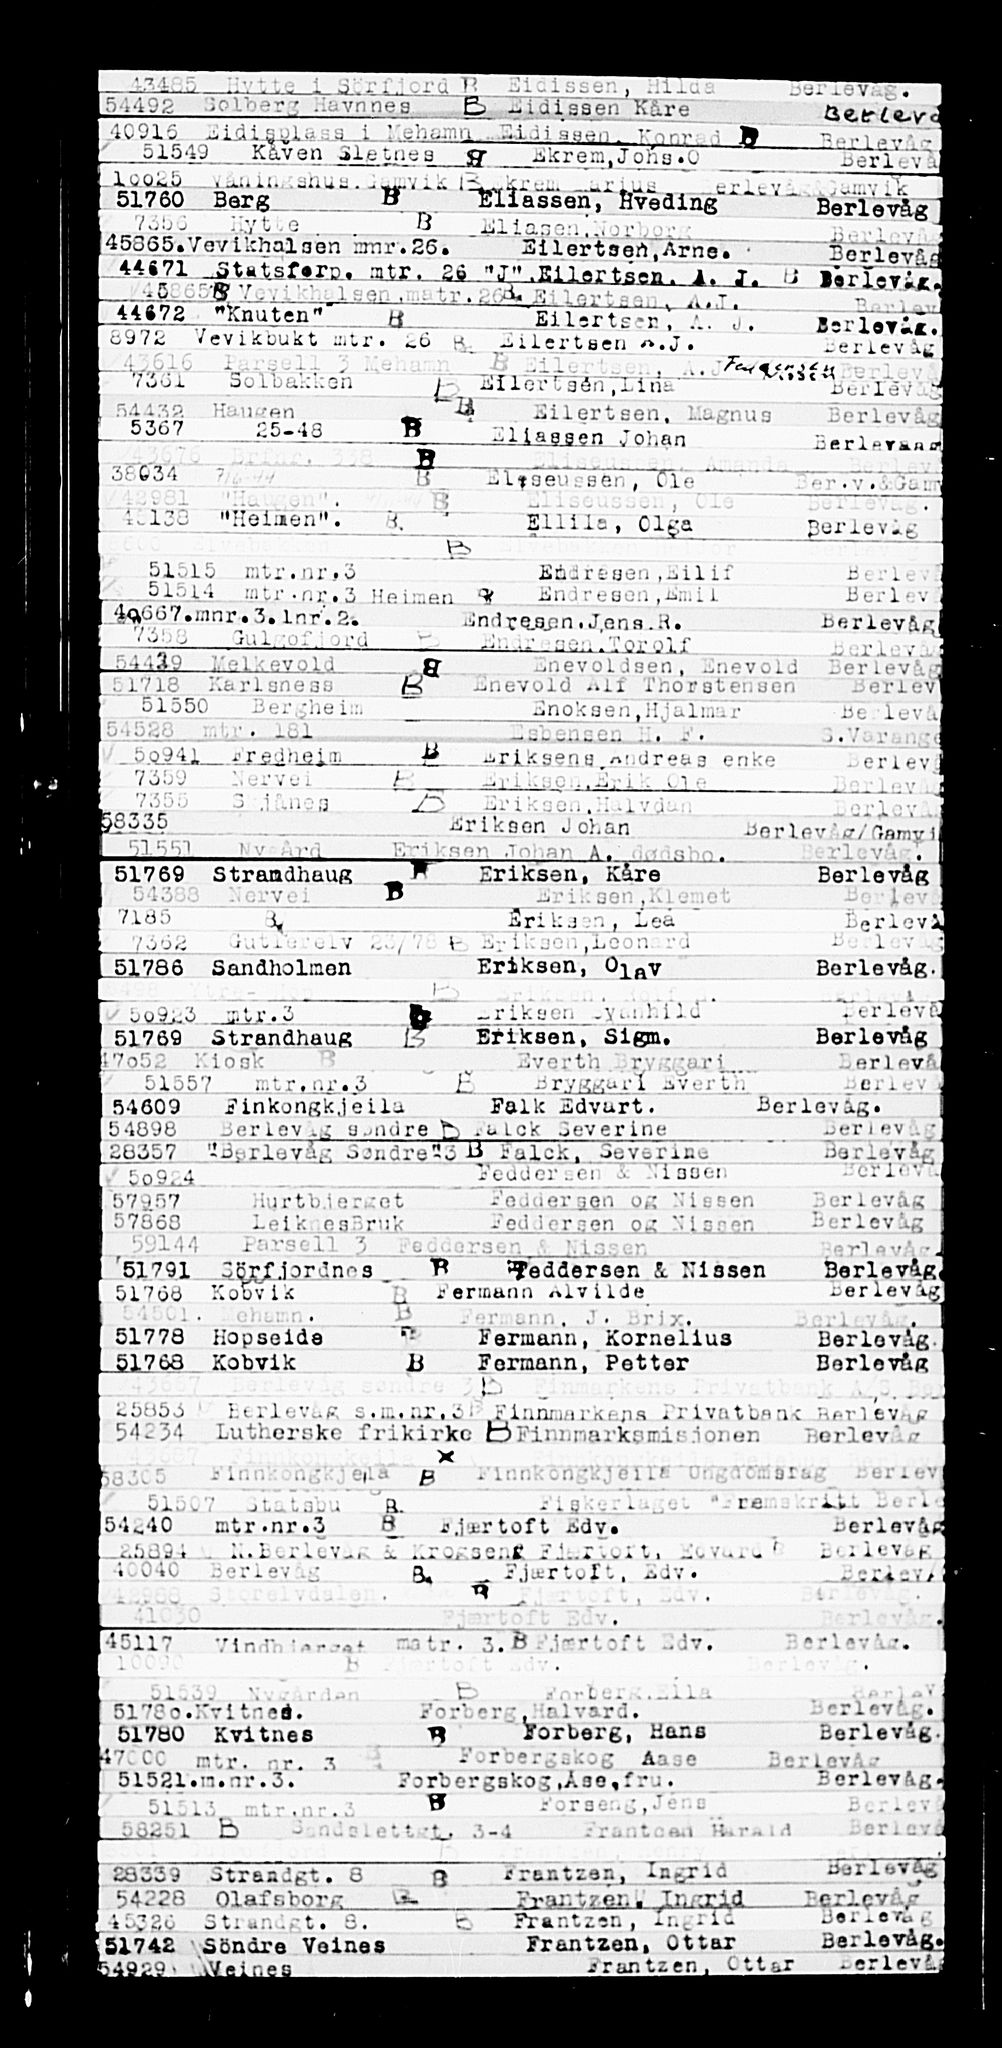 43485 Hytte i Sörfjord B Eidissen, Hilda Berlevåg.
54492 Solberg Havnnes B Eidissen Kåre Berlevå
40916 Eidisplass i Mehamn Eidissen, Konrad B Berlevåg
51549 Kåven Sletnes B Ekrem, Johs.O Berlevå
10025 Våningshus.Gamvik B Ekrem Marius Berlevåg&Gamvik
51760 Berg B Eliassen, Hveding Berlevåg
7356 Hytte B Eliasen,Norborg Berlevåg
45865.Vevikhalsen mnr.26. Eilertsen,Arne. Berlevåg
44671 Statsforp. mtr. 26 "J".Eilertsen, A. J. B Berlevåg.
45865 B Vevikhalsen.matr.26 B. Eilertsen, A.J. Berlev
44672 "Knuten" B Eilertsen, A. J. Berlevåg.
8972 Vevikbukt mtr. 26 B. Eilertsen A.J. Berlevåg
43616 Parsell 3 Mehamn B Eilertsen, A.J Feddersen Nissen Berlevå
7361 Solbakken B Eilertsen,Lina Berlevåg
54432 Haugen B Eilertsen, Magnus Berlevåg
5367 25-48 B Eliassen Johan Berlevaag
43676 Brfnr. 338 B Eliseussen, Amanda
38034 7/6-44 B Eliseussen, Ole Ber.v.&Gamv
42981 "Haugen". B Eliseussen, Ole Berlevåg.
"Heimen". B. Ellila, Olga Berlevåg
B
51515 mtr.nr.3 Endresen,Eilif Berlevå
51514 mtr.nr.3 Heimen Endresen,Emil Berlev
40667.mnr.3.lnr.2. Endresen.Jens.R. Berlevåg
7358 Gulgofjord B Endresen.Torolf Berlevåg
54439 Melkevold B Enevoldsen, Enevold Berlevåg
51718 Karlsness B Enevold Alf Thorstensen Berlev
51550 Bergheim Enoksen,Hjalmar Berlevå
54528 mtr. 181 Esbensen H. F. S.Varange
50941 Fredheim B Eriksens Andreas enke Berlevå
7359 Nervei B Eriksen,Erik Ole Berlevå
7355 Skjånes B Eriksen,Halvdan Berlevåg
58335 Eriksen Johan Berlevåg/Gamvi
51551 Nygård Eriksen Johan A. dødsbo. Berlevåg.
51769 Strandhaug Eriksen, Kåre Berlevåg
54388 Nervei B Eriksen,Klemet Berlevå
7185 B. Eriksen, Lea Berlevå
7362 23/78 B Eriksen,Leonard Berlevåg
51786 Sandholmen Eriksen, Olav Berlevåg.
B
50923 mtr.3 Eriksen Svanhild Berlevå
51769 Strandhaug B Eriksen, Sigm. Berlevåg
47052 Kiosk B Everth Bryggari Berlevå
51557 mtr.nr.3 B Bryggari Everth Berlev
54609 Finkongkjeila Falk Edvart. Berlevåg.
54898 Berlevåg søndre B Falck Severine Berlevåg
28357 "Berlevåg Søndre"3 B Falck, Severine Berlevåg
50924 Feddersen & Nissen Berlevå
57957 Hurtbjerget Feddersen og Nissen Berlevåg
57868 LeiknesBruk Feddersen og Nissen Berlevåg
59144 Parsell 3 Feddersen & Nissen Berlevåg.
51791 Sörfjordnes B Feddersen & Nissen Berlevåg.
51768 Kobvik B Fermann Alvilde Berlevåg
54501. Mehamn. B Fermann, J. Brix. Berlevåg.
51778 Hopseide Fermann, Kornelius Berlevåg.
51768 Kobvik B Fermann, Petter Berlevåg
Berlevåg søndre 3 B Finmarkens Privatbank A/S.
25853 Berlevåg s.m.nr.3 B Finnmarkens Privatbank Berlevåg
54234 Lutherske frikirke B Finnmarksmisjonen Berlevåg
43687 Finnkongkeila x
58305 Finnkongkjeila B Finnkongkjeila Ungdomslag Berlev
51507 Statsbu B. Fiskerlaget "Fremskritt Berle
54240 mtr.nr.3 B Fjærtoft Edv. Berlevåg
25894 N.Berlevåg & Krogseng Fjærtoft, Edvard B Berlevåg
40040 Berlevåg B. Fjærtoft, Edv. Berlev
42988 Storelvdalen. B Fjærtoft, Edv. Berlevåg.
41030 Fjærtoft Edv. Berlevåg.
45117 Vindbjerget matr. 3. B Fjærtoft Edv. Berlevåg.
10090 B Fjærtoft Edv. Berlevåg.
51539 Nygården B Forberg.Ella Berlev
51780.Kvitnes. Forberg,Halvard. Berlevåg.
51780 Kvitnes B Forberg, Hans Berlevåg.
47000 mtr. nr. 3 Forbergskog Aase Berlevåg
51521.m.nr.3. Forbergskog,Åse,fru. Berlevåg.
51513 mtr.nr.3 B Forseng,Jens Berlevå
58251 B Sandslettgt. 3-4 Frantzen Harald Berlevå
28339 Strandgt. 8 B Frantzen, Ingrid Berlevåg
54228 Olafsborg B Frantzen, Ingrid Berlevåg
45326 Strandgt. 8. B Frantzen, Ingrid Berlevåg
51742 Söndre Veines Frantzen, Ottar Berlevåg.
54929 Veines Frantzen, Ottar Berlevåg